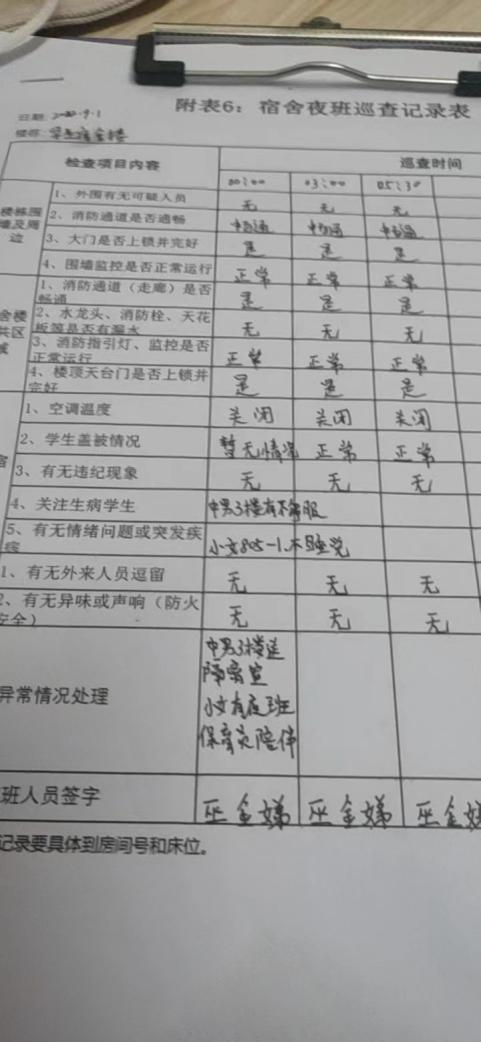 附表6：宿舍夜班巡查记录表
日期
楼栋
检查项目内容 巡查时间
00:00 03:00 05:30
楼栋围墙及周边
1、外围有无可疑人员 无 无 无
2、消防通道是否通畅
3、大门是否上锁并完好 是 是 是
4、围墙监控是否正常运行 正常 正常 正常
舍楼
共区
域
1、消防通道（走廊）是否畅通 是 是 是
2、水龙头、消防栓、天花板等是否有漏水 无 无 无
3、消防指引灯、监控是否正常运行 正常 正常 正常
4、楼顶天台门是否上锁并完好 是 是 是
1、空调温度 关闭 关闭 关闭
2、学生盖被情况 暂无情况 正常 正常
3、有无违纪现象 无 无 无
4、关注生病学生 中男3楼有不舒服
5、有无情绪问题或突发疾病 小女805-1.不睡觉
1、有无外来人员逗留 无 无 无
2、有无异味或声响（防火安全） 无 无 无
异常情况处理
中男3楼送
隔离室
小女有夜班
保育员陪伴
班人员签字 巫金娣 巫金娣 巫金娣
记录要具体到房间号和床位。